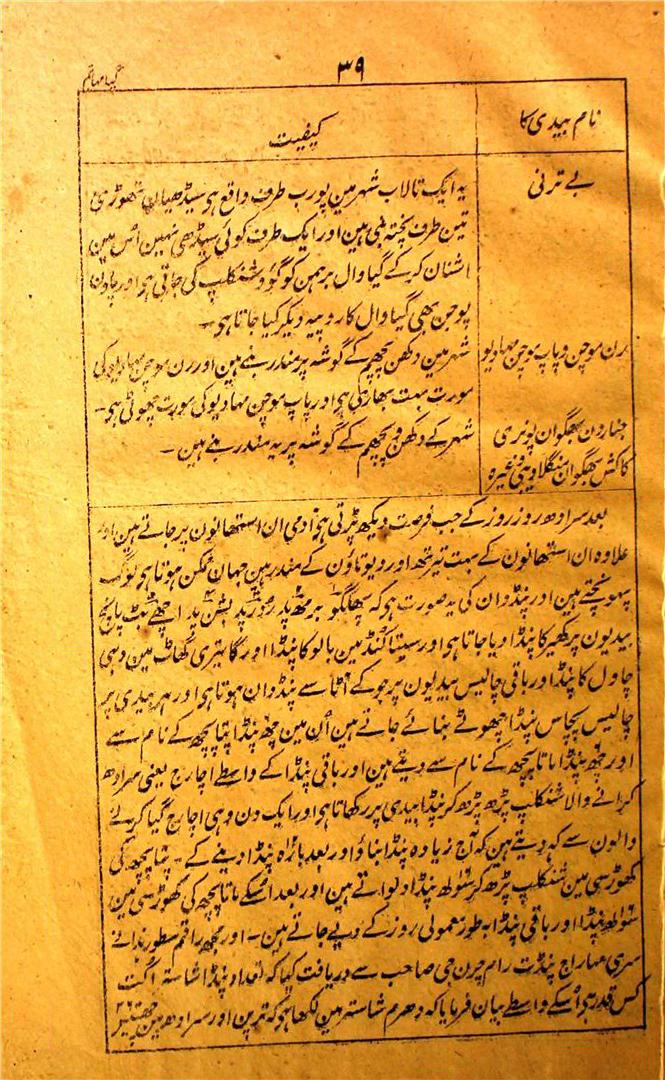 ۳۹
گیا مہاتم
نام بیدی کا
کیفیت
بے ترنی
یہ ایک تالاب شہر مین پورب طرف واقع ہی سیڈھیان تھوڑی
تین طرف پختہ بنی ہین اور ایک طرف کوئی سیڈھی نہین اس مین
اشنان کر کے گیا وال برہمن کو گؤ شنکلپ کی جاتی ہی اور پادن
پوجن بھی گیا وال کا روپیہ دیکر کیا جاتا ہی۔
رن موچن و پاپ موچن مہادیو
شہر مین دکھن پچھم کے گوشہ پر مندر بنے ہین اور رن موچن مہادیو کی
مورت بہت بھاری ہی اور پاپ موچن مہادیو کی مورت چھوٹی ہی۔
جناردن بھگوان پونری
کاکش بھگوان منگلا دیبی وغیرہ
شہر کے دکھن و پچھم کے گوشہ پر یہ مندر بنے ہین۔
بعد سرادھ روز روز کے جب فرصت دیکھ پڑتی ہی آدمی ان استھانون پر جاتے ہین اور
علاوہ ان استھانون کے بہت تیرتھ اور دیوتاؤن کے مندر ہین جہان تک ممکن ہوتا ہی لوگ
پہونچتے ہین اور پنڈدان کی یہ صورت ہی کہ پھلگو برمھ پد رودر پد بشن پد اچھے بٹ پانچ
بیدیون پر کھیر کا پنڈا دیا جاتا ہی اور سیتا کنڈ مین بالو کا پنڈا اور گایتری گھاٹ مین دہی
چاول کا پنڈا اور باقی چالیس بیدیون پر جو کے آٹا سے پنڈدان ہوتا ہی اور ہر بیدی پر
چالیس پچاس پنڈا چھوٹے بنائے جاتے ہین اُن مین چھ پنڈا پتا پچھ کے نام سے
اور چھ پنڈا ماتا پچھ کے نام سے دیتے ہین اور باقی پنڈا کے واسطے اچارج یعنی سرادھ
کرانے والا شنکلپ پڑھ پڑھ کر پنڈا بیدی پر رکھاتا ہی اور ایک دن وہی اچارج گیا کرنے
والون سے کہ دیتے ہین کہ آج زیادہ پنڈا بناؤ اور بعد بارہ پنڈا دینے کے۔ پتا پچھ کی
کھوڑسی مین شنکلپ پڑھ کر سولھ پنڈا دلواتے ہین اور بعد اسکے ماتا پچھ کی کھوڑسی مین
سولھ پنڈا اور باقی پنڈا بہ طور معمولی روز کے دیے جاتے ہین۔ اور مجھ راقم سطور نے
سری مہاراج پنڈت رام چرن جی صاحب سے دریافت کیا کہ تعداد پنڈا شاستر اُکت
کس قدر ہی اُسکے واسطے بیان فرمایا کہ دھرم شاستر مین لکھا ہی کہ ترپن اور سرادھ مین